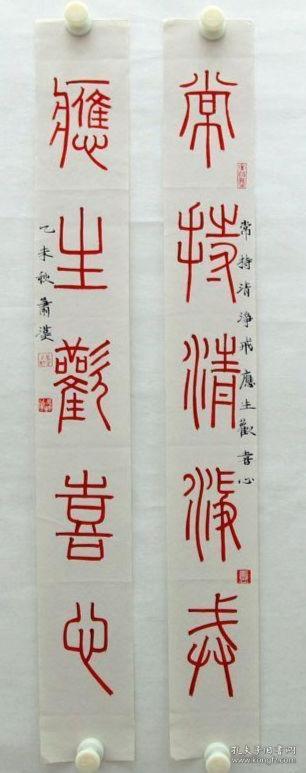 常持清淨戒
常持清淨戒應生歡喜心
應生歡喜心
乙未秋蕭
孔夫子旧书网